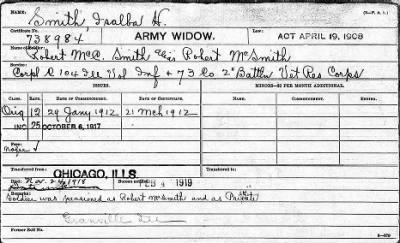 NAME: Smith Isalba H. (S.—P. A. I.)
Certificate No. 738984 ARMY WIDOW. Law: ACT APRIL 19, 1908
Robert McC. Smith alias Robert McSmith
Service: Corpl C 104 Ill Vol Inf + 73 Co 2" Battln Vet Res Corps
ISSUES. MINORS—$2 PER MONTH ADDITIONAL.
Class. Rate. Date of Commencement. Date of Certificate. Rate. Date of Commencement.
Orig 12 29 Jany 1912 21 Mch 1912
INC 25 OCTOBER 6, 1917
Fees:
Transferred from CHICAGO, ILLS. Transferred to
Died Nov. 24, 1918 FEB 4 1919
Remarks:
Soldier was pensioned as Robert McSmith and as Private
Granville
Former Roll No.